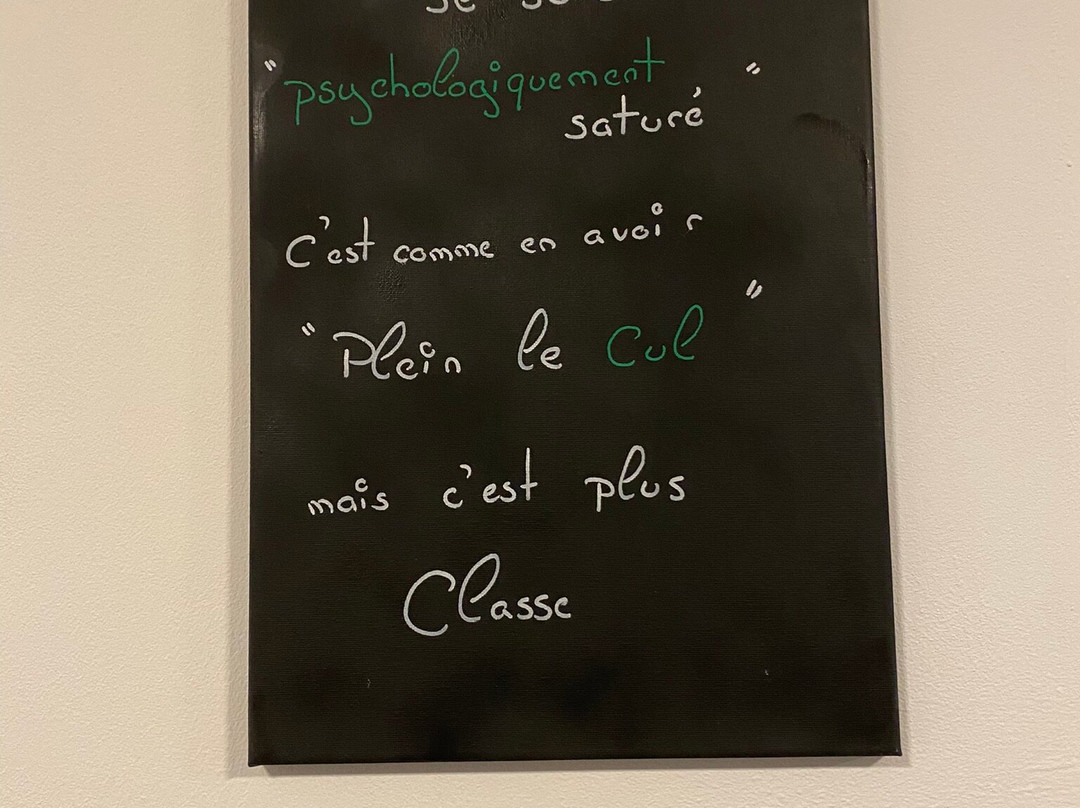 " psychologiquement "
saturé
C'est comme en avoir
" Plein le Cul "
mais c'est plus
Classe